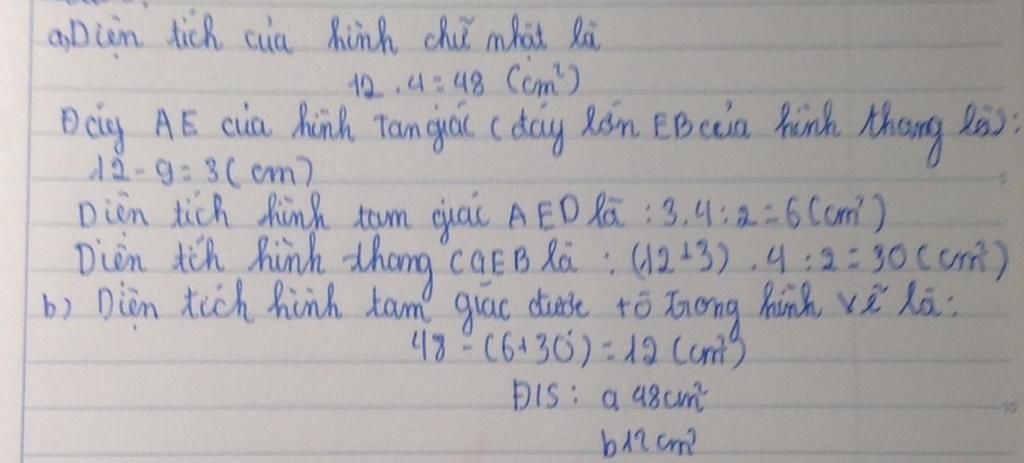 a, Diện tích của hình chữ nhật là
12 . 4 = 48 (cm²)
Đáy AE của hình Tan giác ( đáy lớn EB của hình thang là):
12 - 9 = 3 (cm)
Diện tích hình tam giác AED là : 3.4 : 2 = 6 (cm²)
Diện tích hình thang CGEB là : (12+3) . 4 : 2 = 30 (cm²)
b) Diện tích hình tam giác được tô trong hình vẽ là:
48 - (6+30) = 12 (cm²)
Đ/S : a 48cm²
b 12 cm²